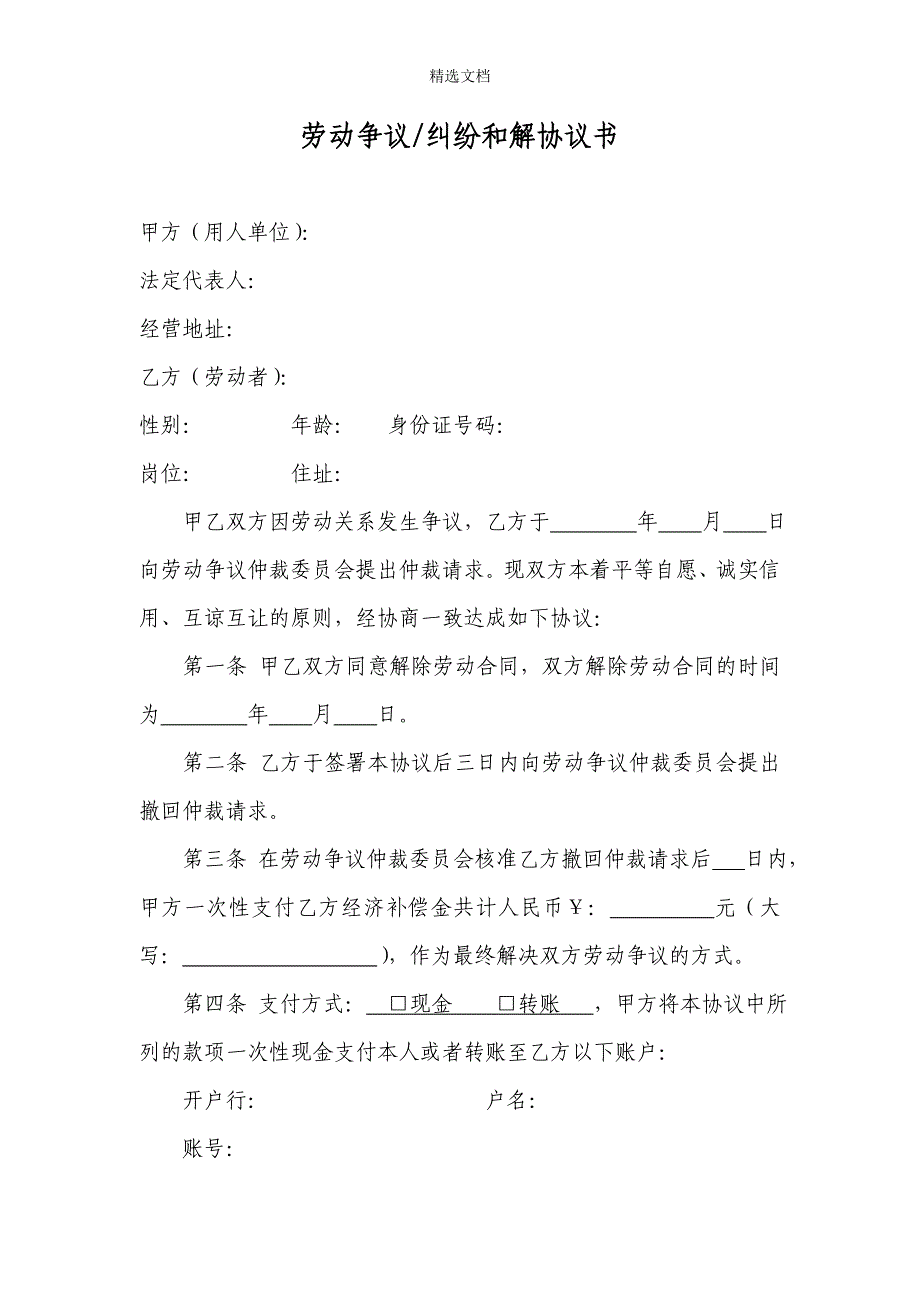 精选文档
劳动争议/纠纷和解协议书
甲方（用人单位）：
法定代表人：
经营地址：
乙方（劳动者）：
性别： 年龄： 身份证号码：
岗位： 住址：
甲乙双方因劳动关系发生争议，乙方于________年____月____日
向劳动争议仲裁委员会提出仲裁请求。现双方本着平等自愿、诚实信
用、互谅互让的原则，经协商一致达成如下协议：
第一条 甲乙双方同意解除劳动合同，双方解除劳动合同的时间
为________年____月____日。
第二条 乙方于签署本协议后三日内向劳动争议仲裁委员会提出
撤回仲裁请求。
第三条 在劳动争议仲裁委员会核准乙方撤回仲裁请求后___日内，
甲方一次性支付乙方经济补偿金共计人民币￥：__________元（大
写：__________________），作为最终解决双方劳动争议的方式。
第四条 支付方式： □现金 □转账 ，甲方将本协议中所
列的款项一次性现金支付本人或者转账至乙方以下账户：
开户行： 户名：
账号：